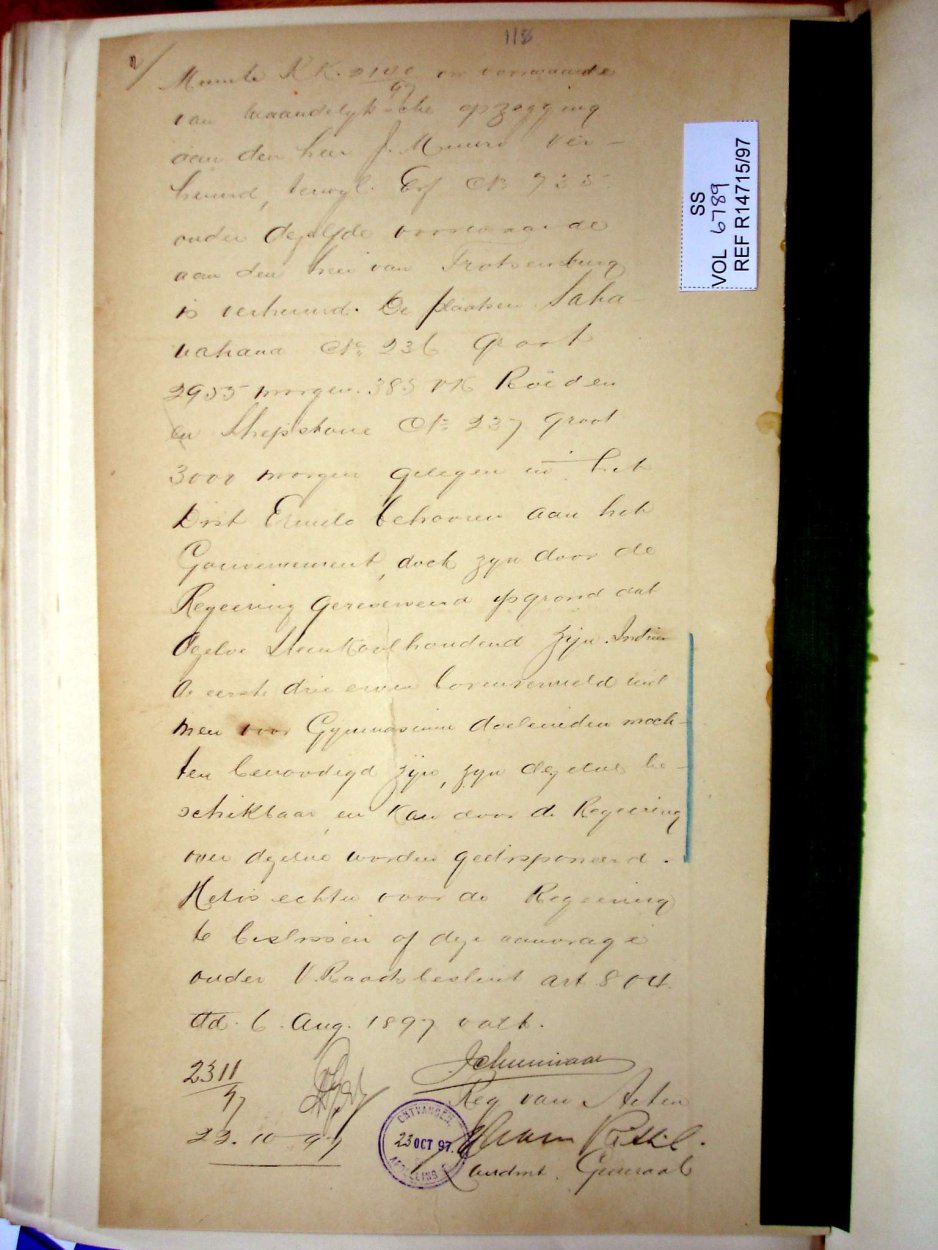 118
2/
Minute R.K. 2180/97 op voorwaarde
van maandelyksche opzegging
aan den heer J. Munro ver-
huurd, terwyl Erf No 735
onder dezelfde voorwaarde
aan den heer van Trotsenburg
is verhuurd. De plaatsen Saha-
No 236 Groot
2955 morgen 383 vk Roeden
en Shepstone No 237 groot
3000 morgen gelegen in het
Dist Ermelo behooren aan het
Gouvernement, doch zyn door de
Regeering gereserveerd op grond dat
dezelve Steenkoolhoudend zijn. Indien
de eerste drie erven bovenvermeld
men voor Gymnasium doeleinden moch-
ten benoodigd zijn, zyn dezelve be-
schikbaar en kan door de Regeering
over dezelve worden gedisponeerd.
Het is echter voor de Regeering
te beslissen of deze aanvrage
onder V. Raadsbesluit art 804
dd. 6 Aug. 1897 valt.
2311/97
Reg van Acten
22.10.97
ONTVANGEN
23 OCT 97.
AFDELING
Landmt. Generaal
SS
VOL 6789
REF R14715/97